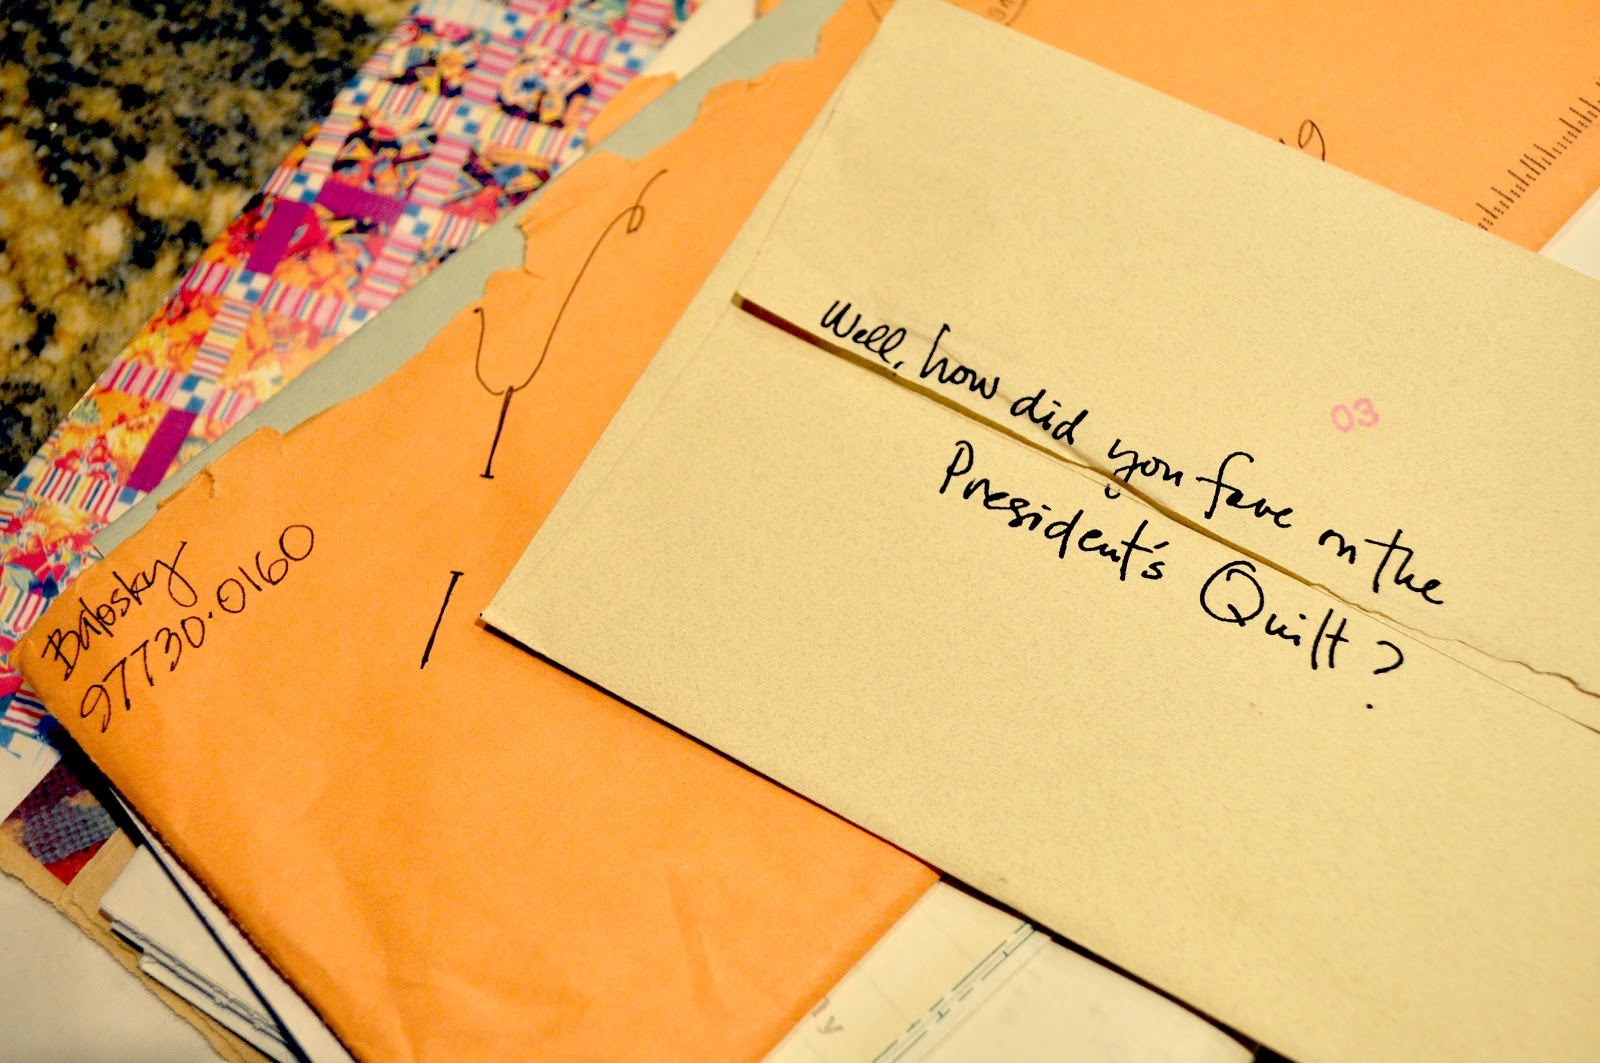 Well, how did you fare on the
President's Quilt?
03
Balosky
97730·0160